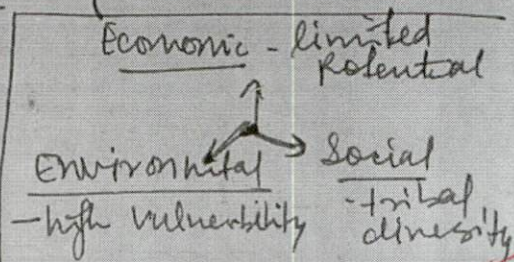 Economic - limited
potential
Environmental
Social
- high vulnerbility
- tribal
diversity